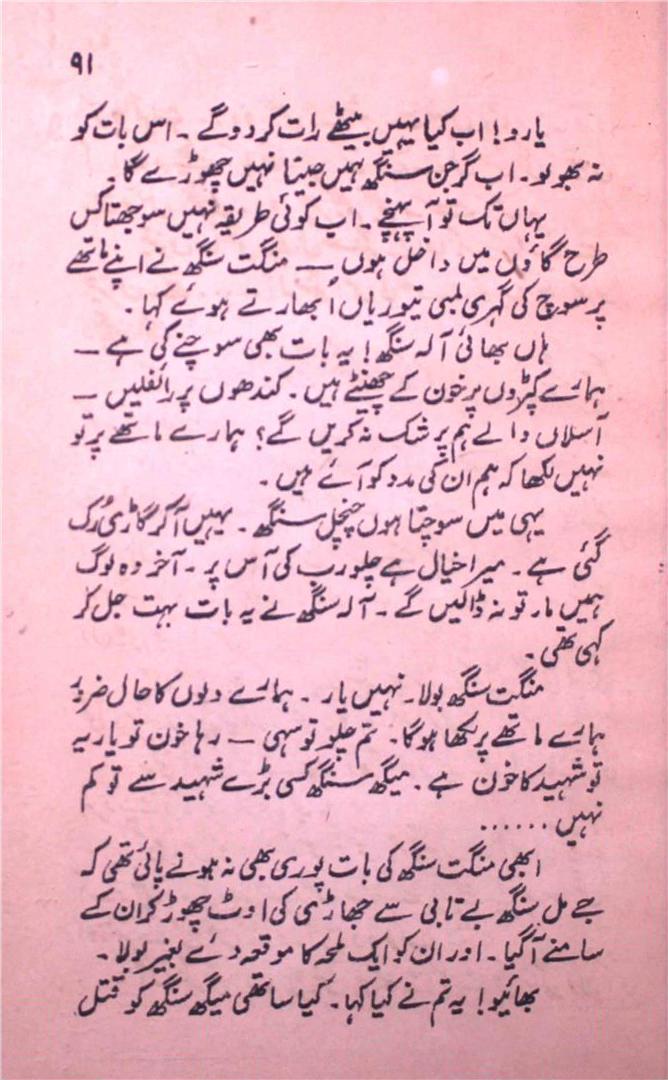 ۹۱
یارو! اب کیا یہیں بیٹھے رات کر دو گے ۔ اس بات کو
نہ بھولو۔ اب گرجن سنگھ ہمیں جیتا نہیں چھوڑے گا۔
یہاں تک تو آ پہنچے ۔ اب کوئی طریقہ نہیں سوجھتا کس
طرح گاؤں میں داخل ہوں ــ منگت سنگھ نے اپنے ماتھے
پر سوچ کی گہری لمبی تیوریاں اُبھارتے ہوئے کہا۔
ہاں بھائی آلہ سنگھ! یہ بات بھی سوچنے کی ہے ــ
ہمارے کپڑوں پر خون کے چھینٹے ہیں۔ کندھوں پر رائفلیں ــ
آسلاں والے ہم پر شک نہ کریں گے؟ ہمارے ماتھے پر تو
نہیں لکھا کہ ہم ان کی مدد کو آئے ہیں ۔
یہی میں سوچتا ہوں چنچل سنگھ ۔ یہیں آ کر گاڑی رُک
گئی ہے ۔ میرا خیال ہے چلو رب کی آس پر ۔ آخر وہ لوگ
ہمیں مار تو نہ ڈالیں گے ۔ آلہ سنگھ نے یہ بات بہت جل کر
کہی تھی ۔
منگت سنگھ بولا۔ نہیں یار ۔ ہمارے دلوں کا حال ضرور
ہمارے ماتھے پر لکھا ہوگا۔ تم چلو تو سہی ــ رہا خون تو یار یہ
تو شہید کا خون ہے ۔ میگھ سنگھ کسی بڑے شہید سے تو کم
نہیں ......
ابھی منگت سنگھ کی بات پوری بھی نہ ہونے پائی تھی کہ
جے مل سنگھ بے تابی سے جھاڑی کی اوٹ چھوڑ کر ان کے
سامنے آگیا ۔ اور ان کو ایک لمحہ کا موقعہ دئے بغیر بولا۔
بھائیو! یہ تم نے کیا کہا۔ کیا ساتھی میگھ سنگھ کو قتل